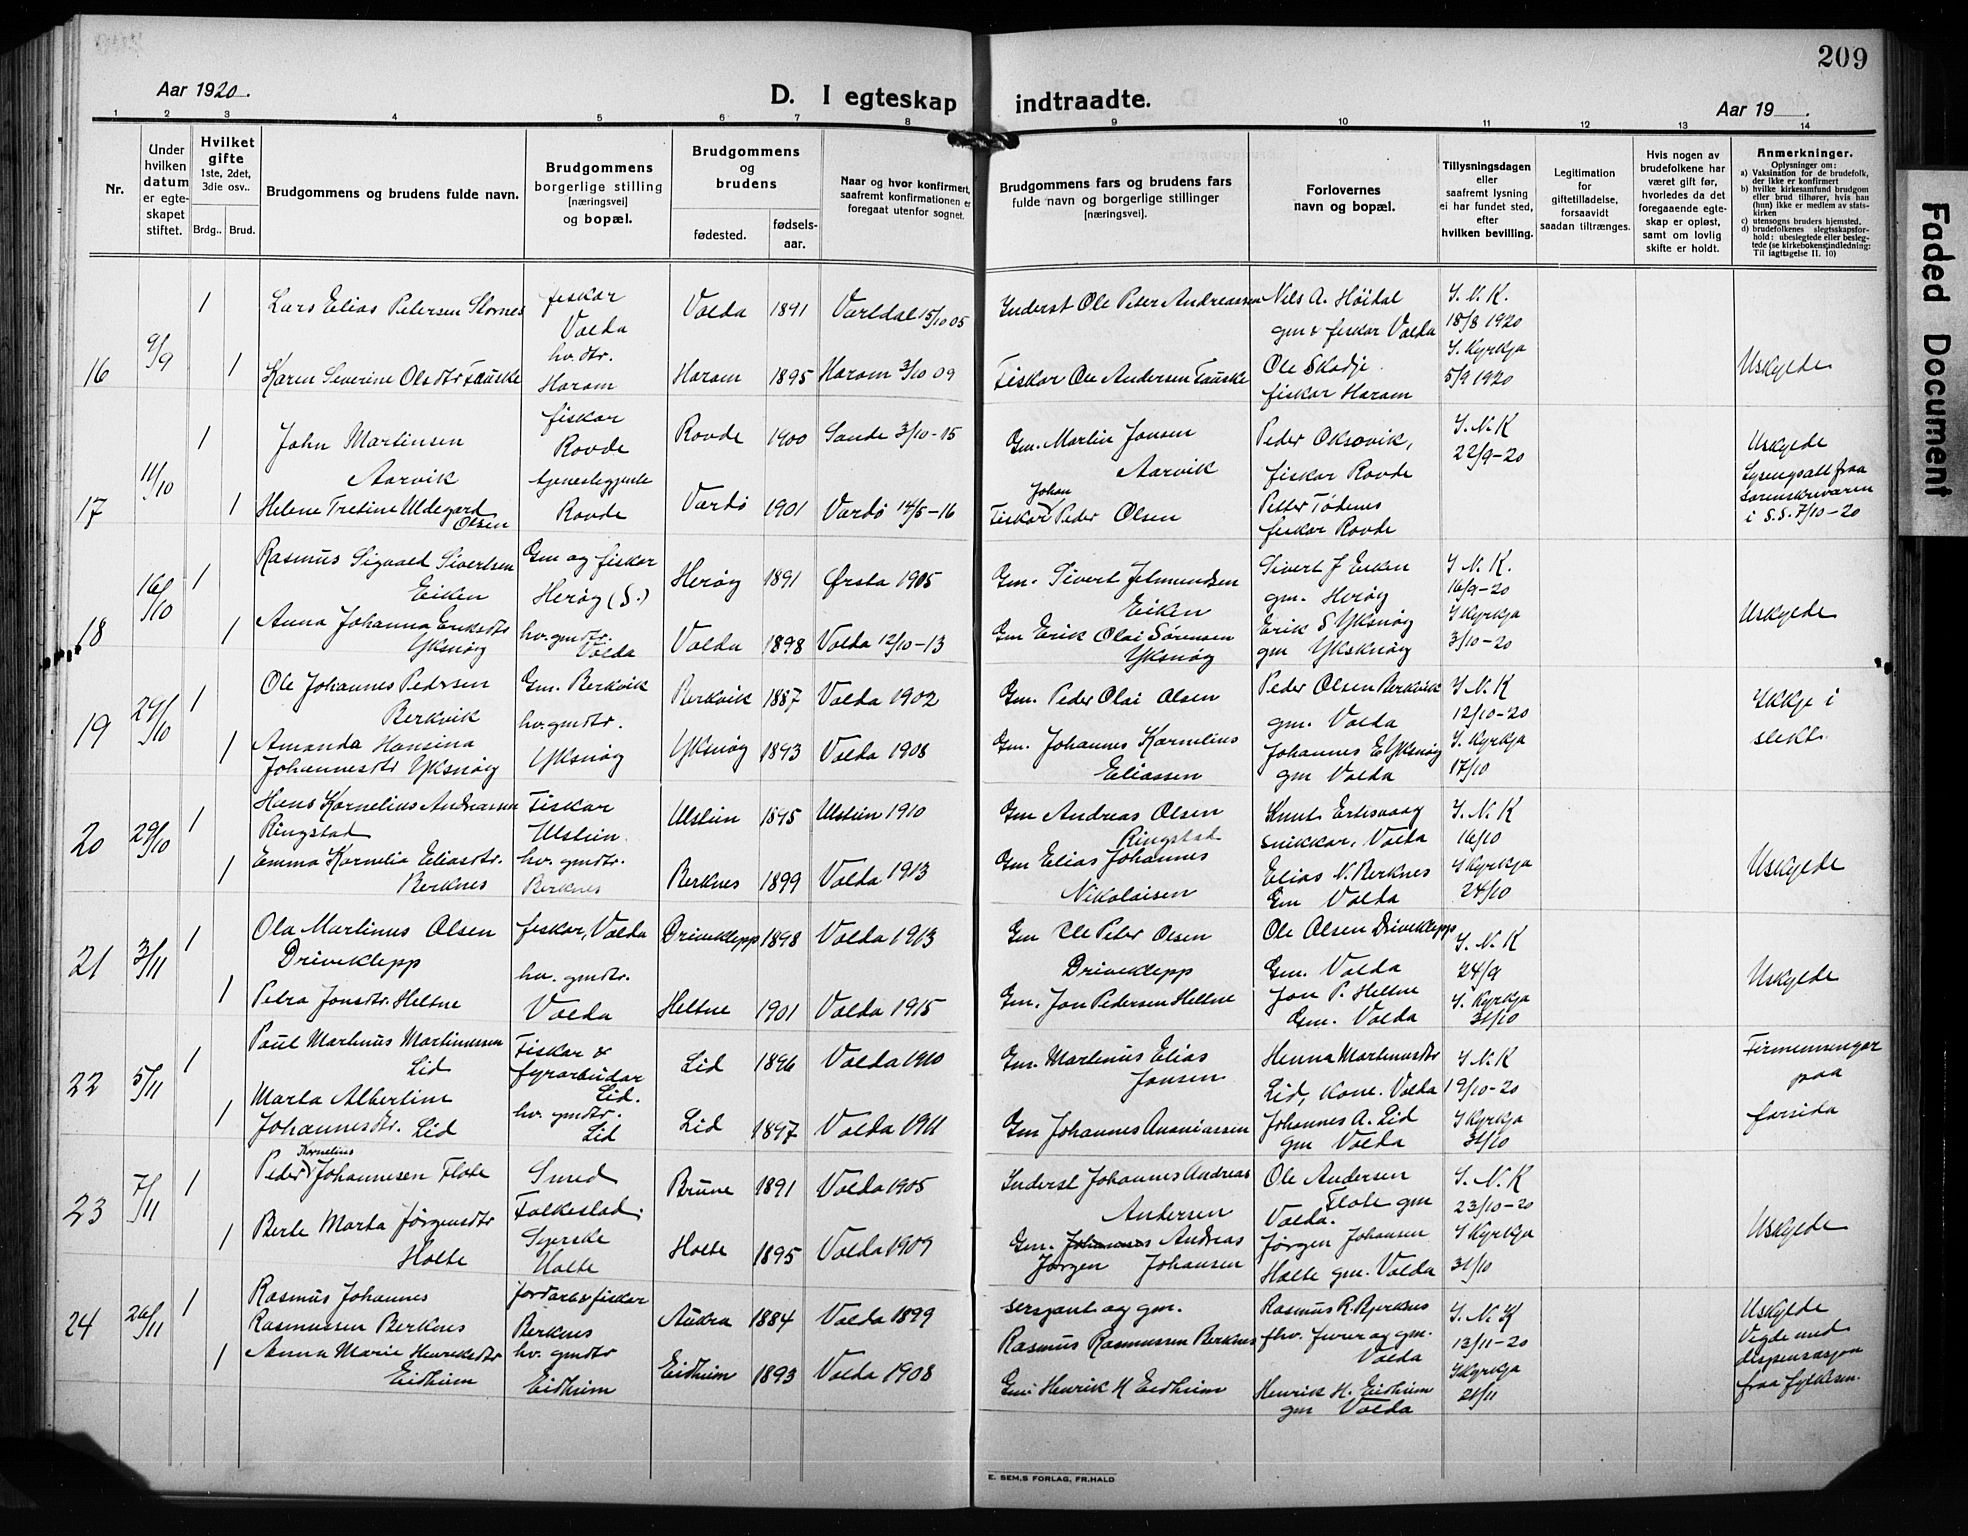 209
Aar 1920.
D. I egteskap indtraadte.
Aar 19 .
1 2 3 4 5 6 7 8 9 10 11 12 13 14
Nr.
Under hvilken datum er egteskapet stiftet.
Hvilket gifte 1ste, 2det, 3die osv..
Brdg.. Brud.
Brudgommens og brudens fulde navn.
Brudgommens borgerlige stilling [næringsvei] og bopæl.
Brudgommens og brudens
fødested. fødsels-aar.
Naar og hvor konfirmert, saafremt konfirmationen er foregaat utenfor sognet.
Brudgommens fars og brudens fars fulde navn og borgerlige stillinger [næringsvei].
Forlovernes navn og bopæl.
Tillysningsdagen eller saafremt lysning ei har fundet sted, efter hvilken bevilling.
Legitimation for giftetilladelse, forsaavidt saadan tiltrænges.
Hvis nogen av brudefolkene har været gift før, hvorledes da det foregaaende egteskap er opløst, samt om lovlig skifte er holdt.
Anmerkninger.
Oplysninger om:
a) Vaksination for de brudefolk, der ikke er konfirmert
b) hvilke kirkesamfund brudgom eller brud tilhører, hvis han (hun) ikke er medlem av statskirken
c) utensogns bruders hjemsted.
d) brudefolkenes slegtsskapsforhold: ubeslegtede eller beslegtede (se kirkebokens indledning: Til iagttagelse II. 10)
16 9/9 1 Lars Elias Petersen Stornes fiskar Volda Volda 1891 Vartdal 15/10 05 Inderst Ole Peter Andreassen Nils A. Höidal gm & fiskar Volda S. N. K. 18/8 1920
1 Karen Severine Olsdtr Tauske hv. dtr. Haram Haram 1895 Haram 3/10 09 Fiskar Ole Andersen Tauske Ole Skodje fiskar Haram I. Kyrkja 5/9 1920 Uskylde
17 11/10 1 John Martinsen Aarvik fiskar Rovde Rovde 1900 Sande 3/10-15 Gm. Martin Jonsen Aarvik Peder Oksavik, fiskar Rovde S. N. K 22/9-20 Uskylde
1 Helene Tretine Uldegard Olsen Rovde Vardö 1901 Vardö 14/5-16 Fiskar Johan Peder Olsen Petter Tödenes fiskar Rovde Lysingsatt. fraa Sorenskrivaren i S.S. 7/10-20
18 16/10 1 Rasmus Sigvald Sivertsen Eiken Gm og fiskar Herøy (S.) Herøy 1891 Ørsta 1905 Gm. Sivert Jetmundsen Eiken Sivert J Eiken gm. Herøy S. N. K. 16/9-20
1 Anna Johanna Eriksdtr Yksnøy hv. gmdtr. Volda Volda 1898 Volda 12/10-13 Gm Erik Olai Sørensen Yksnøy Erik S Yksnøy gm Yksnøy I Kyrkja 3/10-20 Uskylde
19 29/10 1 Ole Johannes Pedersen Berkvik Gm. Berkvik Berkvik 1887 Volda 1902 Gm. Peder Olai Olsen Peder Olsen Berkvik gm. Volda S. N. K 12/10-20 Ikkje i slekt.
1 Amanda Hansina Johannesdtr Yksnøy hv. gmdtr. Yksnøy Yksnøy 1893 Volda 1908 Gm. Johannes Kornelius Eliassen Johannes E Yksnøy gm Volda I. Kyrkja 17/10
20 29/10 1 Hans Kornelius Andreassen Ringstad Fiskar Ulstein. Ulstein 1895 Ulstein 1910 Gm Andreas Olsen Ringstad Knut Ertesvaag snikkar, Volda S. N. K 16/10
1 Emma Kornelia Eliasdtr. Berknes hv. gmdtr. Berknes Berknes 1899 Volda 1913 Gm Elias Johannes Nikolaisen Elias N. Berknes Gm Volda I Kyrkja 24/10 Uskylde
21 3/11 1 Ola Martinus Olsen Driveklepp fiskar, Volda Driveklepp 1898 Volda 1913 Gm Ole Peter Olsen Driveklepp Ole Olsen Driveklepp Gm. Volda S. N. K 24/9 Uskylde
1 Petra Jonsdtr. Heltne hv. gmdtr. Volda Heltne 1901 Volda 1915 Gm. Jon Pedersen Heltne Jon P. Heltne Gm. Volda I. Kyrkja 31/10
22 5/11 1 Paul Martinus Martinussen Lid Fiskar & fyrarbeidar Lid. Lid 1896 Volda 1910 Gm. Martinus Elias Jonsen Henna Martinusdtr Lid, Kone. Volda S. N. K 19/10-20 Firmenningar paa farsida
1 Marta Albertine Johannesdtr. Lid hv. gmdtr. Lid Lid 1897 Volda 1911 Gm Johannes Ananiassen Johannes A. Lid gm Volda I Kyrkja 31/10
23 7/11 1 Peder Kornelius Johannesen Flote Smed Folkestad. Brune 1891 Volda 1905 Inderst Johannes Andreas Andersen Ole Andersen Flote gm Volda. S. N. K 23/10-20
1 Berte Marta Jørgensdtr Holte Syerske Holte Holte 1895 Volda 1909 Gm. Johannes Andreas Jørgen Johansen Jørgen Johansen Holte gm. Volda I Kyrkja 31/10 Uskylde
24 26/11 1 Rasmus Johannes Rasmussen Berknes jordarb & fiskar Berknes Aukra 1884 Volda 1899 sersjant og gm. Rasmus Rasmussen Berknes Rasmus R. Bjerknes fhv. furer og gm. Volda S. N. K 13/11-20 Uskylde Vigde med dispensasjon fraa fylkesm.
1 Anna Marie Henriksdtr Eidheim hv. gmdtr Eidheim Eidheim 1893 Volda 1908 Gm. Henrik H Eidheim Henrik H. Eidheim gm Volda I Kyrkja 21/11
E. SEM,S FORLAG, FR.HALD
Faded Document